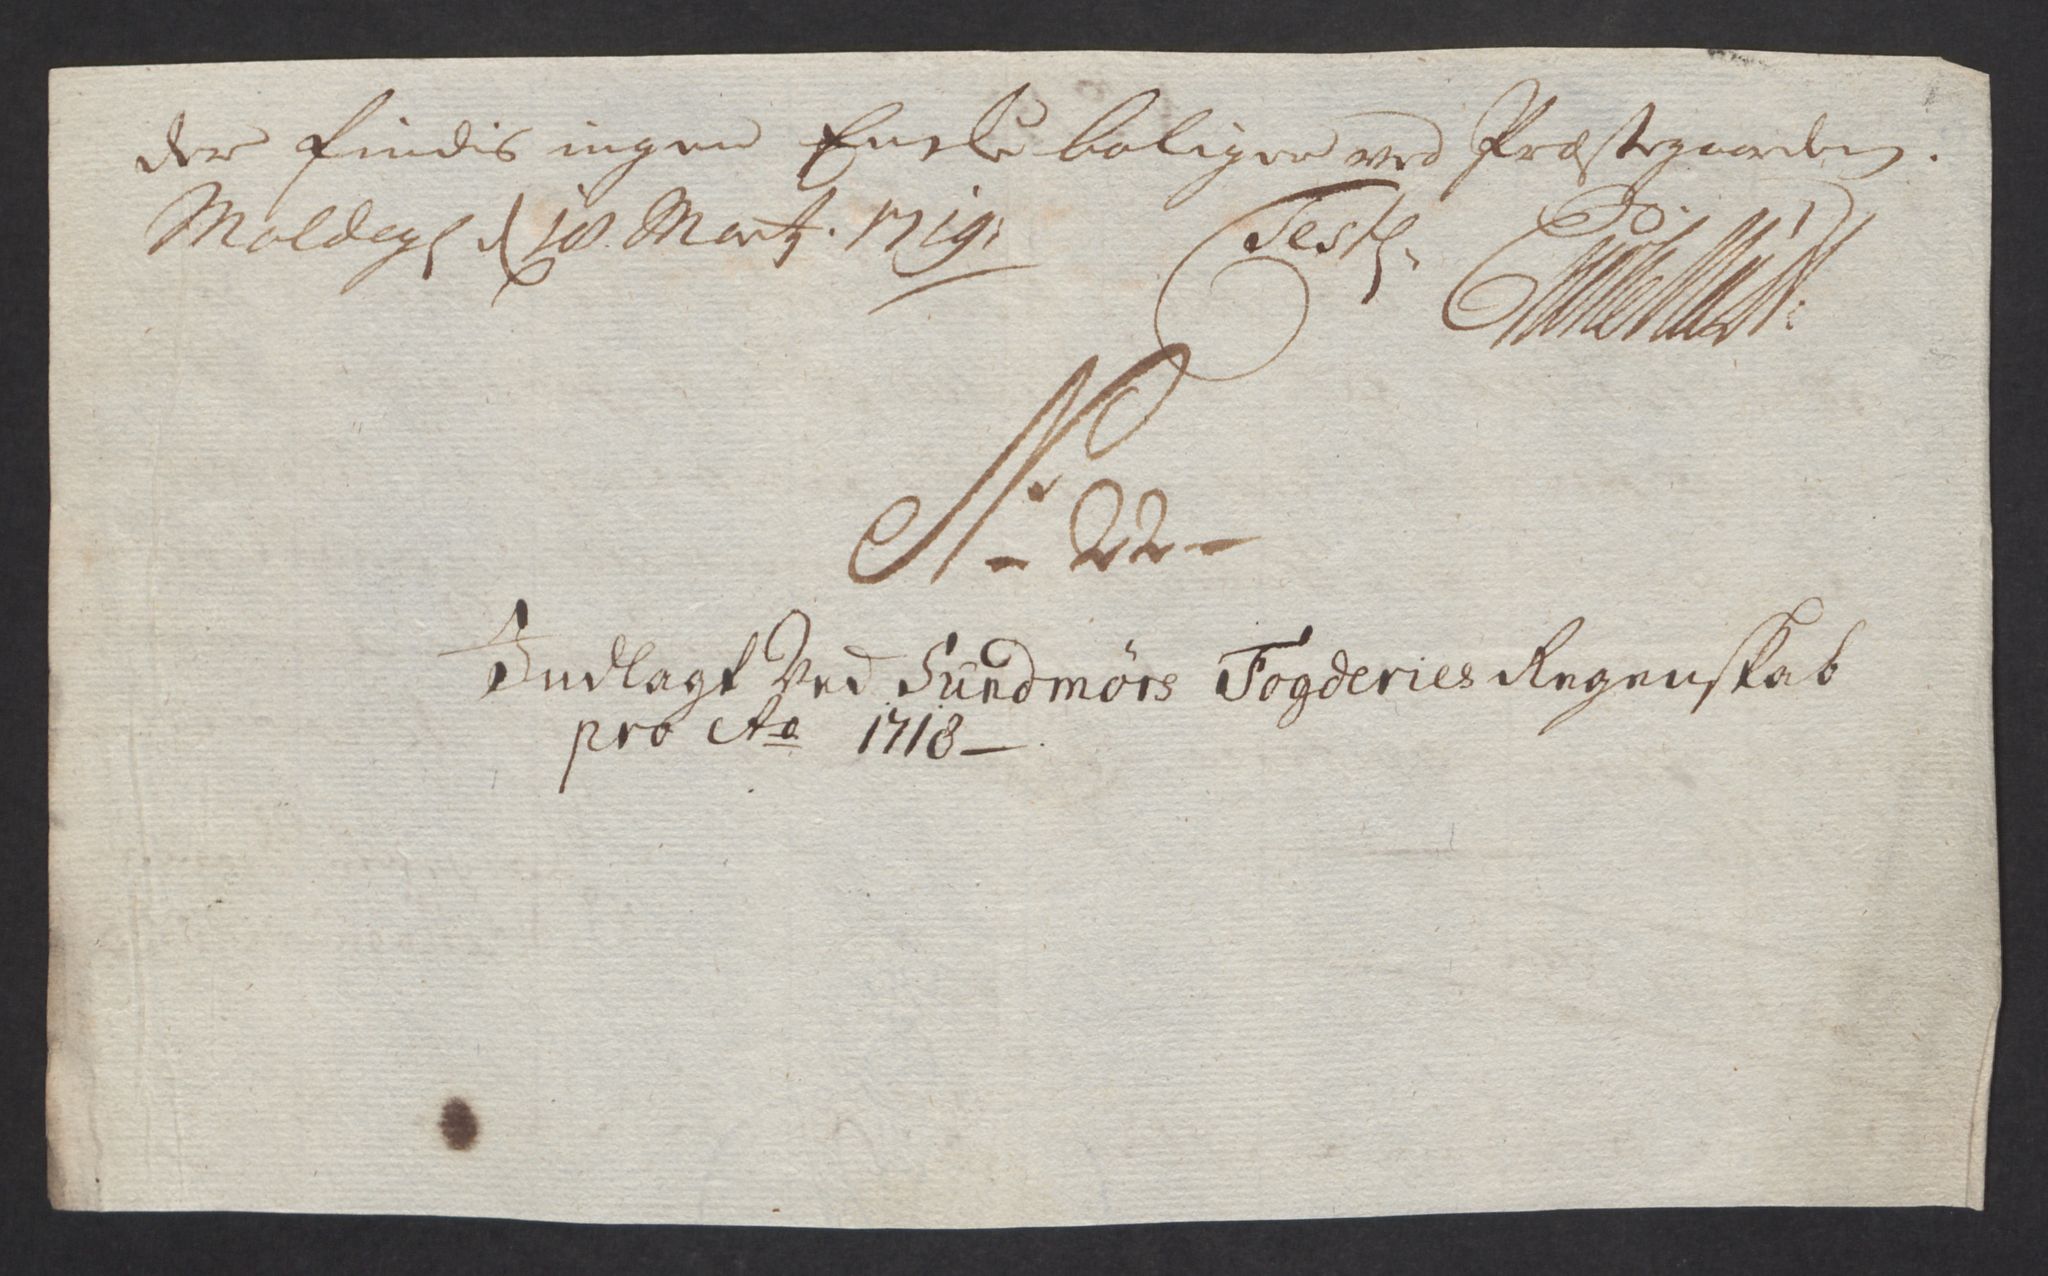 der findis ingen Enke boliger ved Præstegaarden.
d 18. Mart. 1719. Test.
No 22
Indlagt Ved Sundmörs Fogderies Regenskab
pro Ao 1718